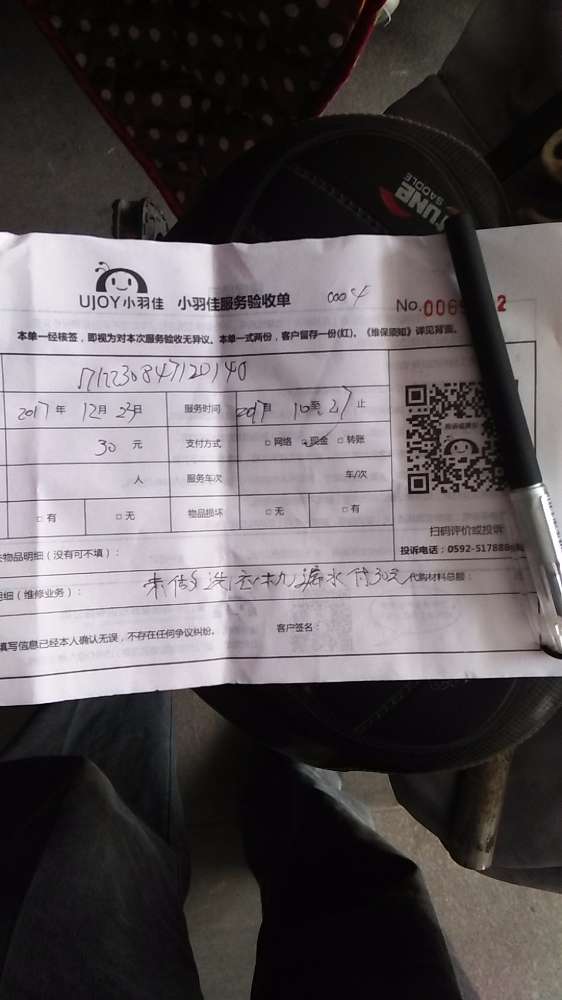 TUNE
SADDLE
UJOY小羽佳 小羽佳服务验收单 0004 No.006 2
本单一经核签，即视为对本次服务验收无异议。本单一式两份，客户留存一份(红)。《维保须知》详见背面。
2017年 12月 23日 服务时间 10至 止
30 元 支付方式 □网络 现金 □转账
人 服务车次 车/次
□有 □无 物品损坏 □无 □有
扫码评价或投诉
物品明细（没有可不填）： 投诉电话：0592-517888
细（维修业务）： 漏水 30元 代购材料总额：
填写信息已经本人确认无误，不存在任何争议纠纷。 客户签名：